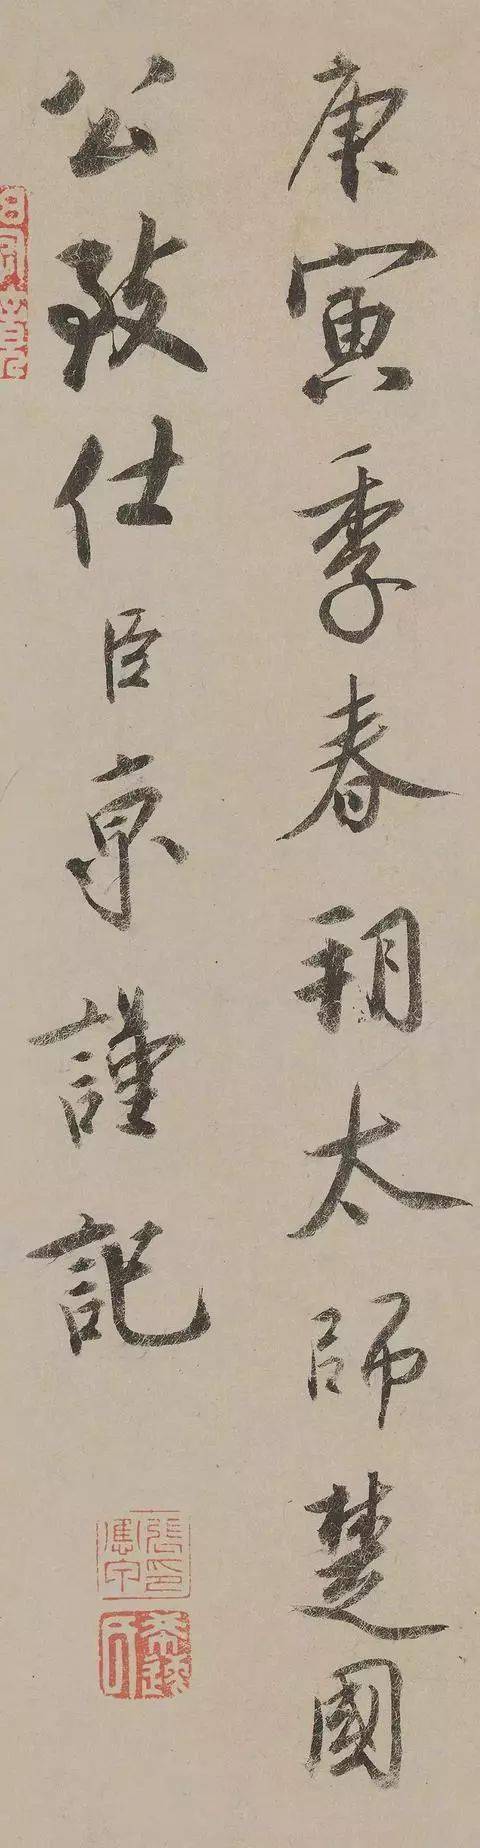 庚寅季春朔太師楚國
公致仕臣京謹記